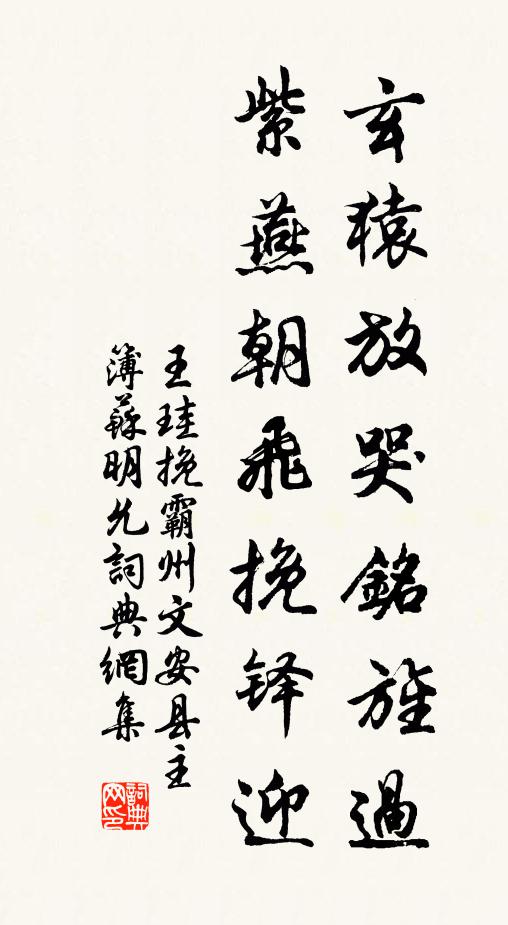 玄猿放哭銘旌過
紫燕朝飛挽铎迎
王珪挽霸州文安县主
簿蘇明允詞典網集
詞典
网印